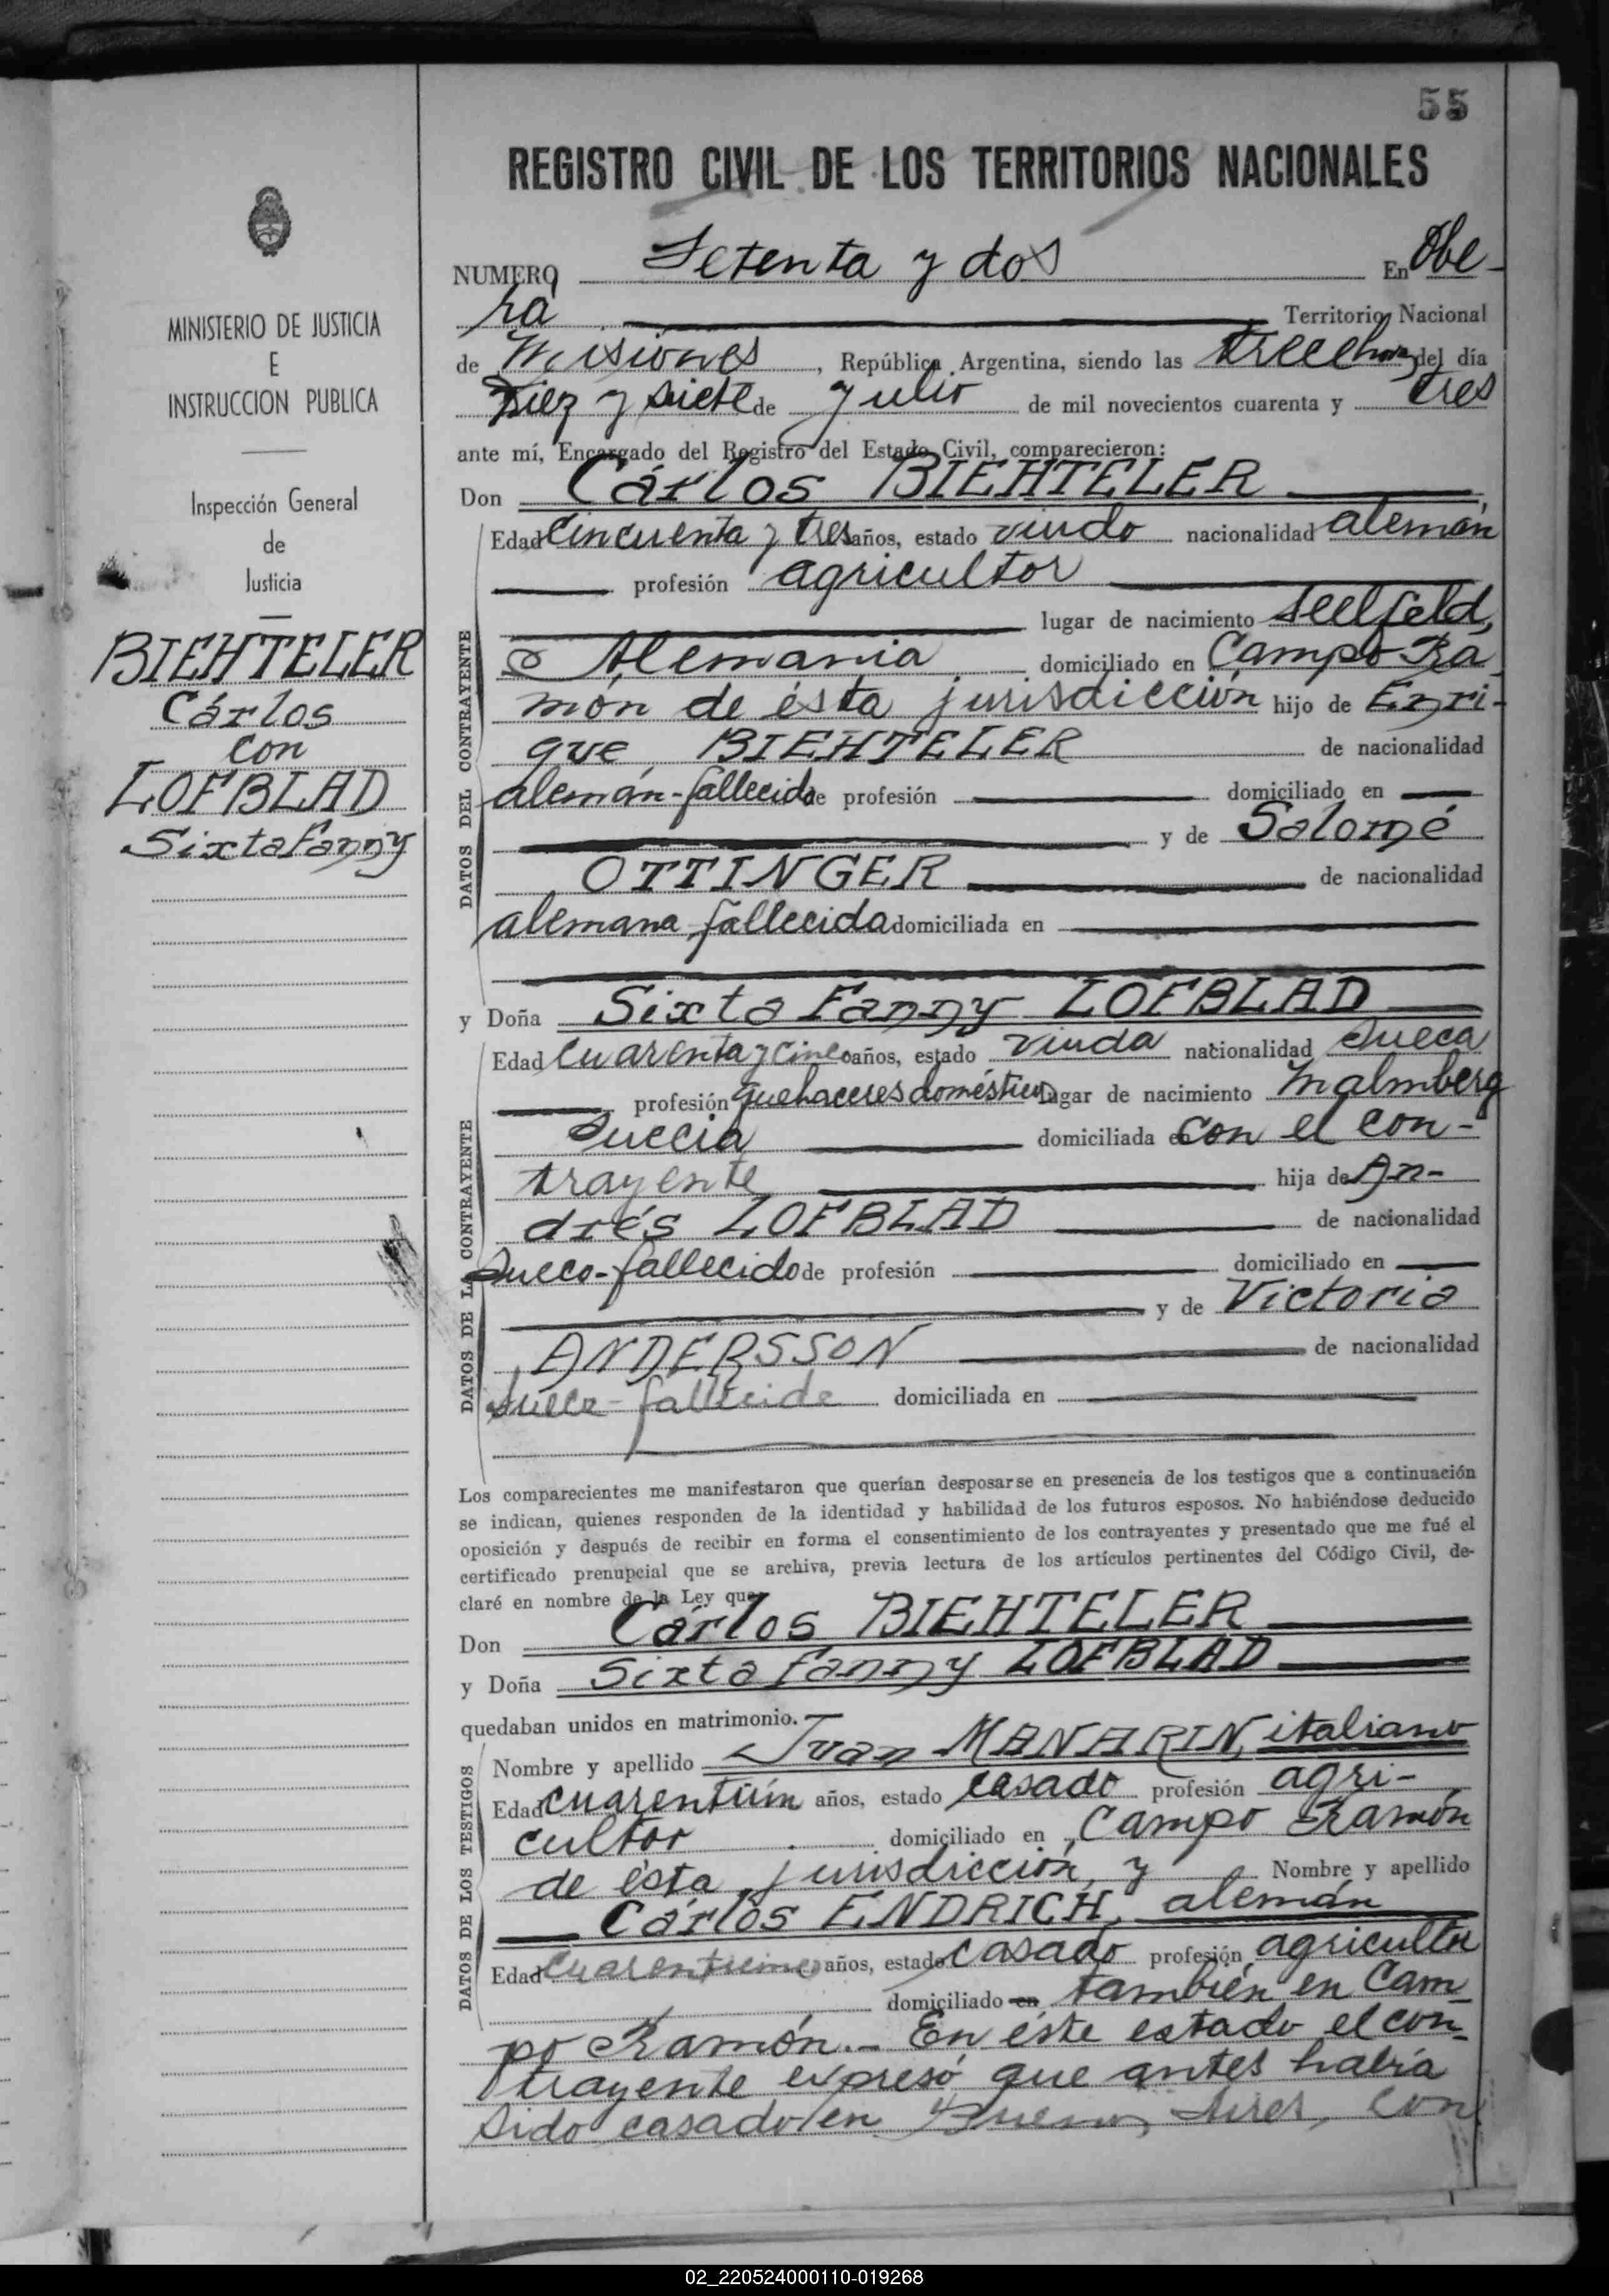 55
REGISTRO CIVIL DE LOS TERRITORIOS NACIONALES
MINISTERIO DE JUSTICIA
E
INSTRUCCION PUBLICA
Inspección General
de
Justicia
BIEHTELER
Cárlos
con
LOFBLAD
Sixta Fanny
NUMERO Setenta y dos En Obe-
rá Territorio Nacional
de Misiones, República Argentina, siendo las trece horas del día
Diez y siete de Julio de mil novecientos cuarenta y tres
ante mí, Encargado del Registro del Estado Civil, comparecieron:
Don Cárlos BIEHTELER
DATOS DEL CONTRAYENTE
Edad Cincuenta y tres años, estado viudo nacionalidad alemán
profesión agricultor
lugar de nacimiento Seelfeld,
Alemania domiciliado en Campo Ra
món de ésta jurisdicción hijo de Enri-
que BIEHTELER de nacionalidad
alemán-fallecido de profesión domiciliado en
y de Salomé
OTTINGER de nacionalidad
alemana fallecida domiciliada en
y Doña Sixta Fanny LOFBLAD
DATOS DE LA CONTRAYENTE
Edad Cuarenta y cinco años, estado viuda nacionalidad Sueca
profesión quehaceres domésticos lugar de nacimiento Malmberg
Suecia domiciliada en con el con-
trayente hija de An-
drés LOFBLAD de nacionalidad
Sueco-fallecido de profesión domiciliado en
y de Victoria
ANDERSSON de nacionalidad
sueca-fallecida domiciliada en
Los comparecientes me manifestaron que querían desposarse en presencia de los testigos que a continuación
se indican, quienes responden de la identidad y habilidad de los futuros esposos. No habiéndose deducido
oposición y después de recibir en forma el consentimiento de los contrayentes y presentado que me fué el
certificado prenupcial que se archiva, previa lectura de los artículos pertinentes del Código Civil, de-
claré en nombre de la Ley que
Don Cárlos BIEHTELER
y Doña Sixta Fanny LOFBLAD
quedaban unidos en matrimonio.
DATOS DE LOS TESTIGOS
Nombre y apellido Juan MANARIN, italiano
Edad cuarentiún años, estado casado profesión agri-
cultor domiciliado en Campo Ramón
de ésta jurisdicción, y Nombre y apellido
Cárlos ENDRICH, alemán
Edad años, estado casado profesión agricultor
domiciliado en también en Cam
po Ramón.- En éste estado el con-
trayente expresó que antes había
sido casado en Buenos Aires, con
02_220524000110-019268